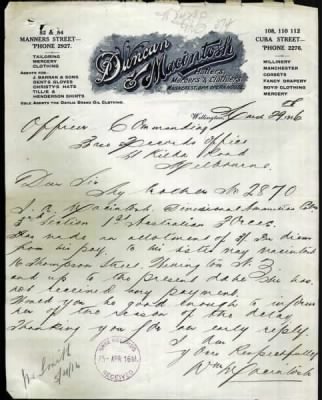 82 & 84
MANNERS STREET—
'PHONE 2927.
TAILORING
MERCERY
CLOTHING
AGENTS FOR:
J. BARMAN & SONS
DENT'S GLOVES
CHRISTY'S HATS
TILLIE &
HENDERSON SHIRTS
SOLE AGENTS THE DAHLIA BRAND OIL CLOTHING.
Duncan
& Macintosh
Hatters,
Mercers & Clothiers
MANNERS ST. OPP. OPERA HOUSE.
108, 110 112
CUBA STREET—
'PHONE 2276.
MILLINERY
MANCHESTER
CORSETS
FANCY DRAPERY
BOYS' CLOTHING
MERCERY
Wellington, March
Officer Commanding
Base Records Office
St Kilda Road
Melbourne.
Dear Sir
My brother No 2870
J. R. Macintosh, Divisional Ammunition
Section 1st Australian Forces.
Has made an allotment of 4/- per diem
from his pay. to his sister may macintosh
Thompson Street, Wellington N.Z.
and up to the present date She has
not received any payment.
Would you be good enough to inform
her of the reason of the delay
Thanking you for an early reply
I am
Yours Respectfully
Wm Macintosh
BASE RECORDS
-5 APR 1916
RECEIVED
Smith
5/4/16